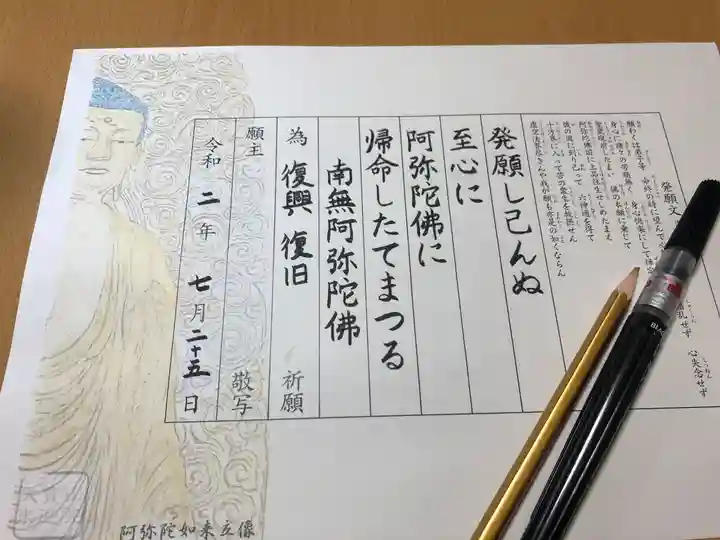 発願文
願わくは弟子等 命終の時に臨んで心
乱せず 心失念せず
身心に諸々の苦痛無く 身心快楽にして禅定
聖衆現前したまい 佛の本願に乗じて
阿弥陀佛国に上品往生せしめたまえ
彼の国に到り已って 六神通を得て
十方界に入って苦の衆生を救摂せん
虚空法界尽きんや我が願も亦是の如くならん
発願し已んぬ
至心に
阿弥陀佛に
帰命したてまつる
南無阿弥陀佛
為 復興 復旧 祈願
願主 敬写
令和 二 年 七 月 二十五 日
阿弥陀如来立像
BLA